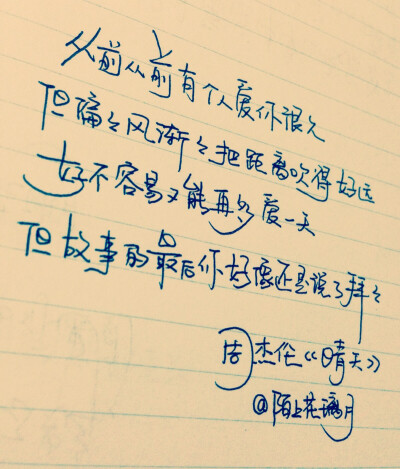 从前从前有个人爱你很久
但偏々风渐々把距离吹得好远
好不容易又能再多爱一天
但故事的最后你好像还是说了拜々
周杰伦《晴天》
@陌上花璃月